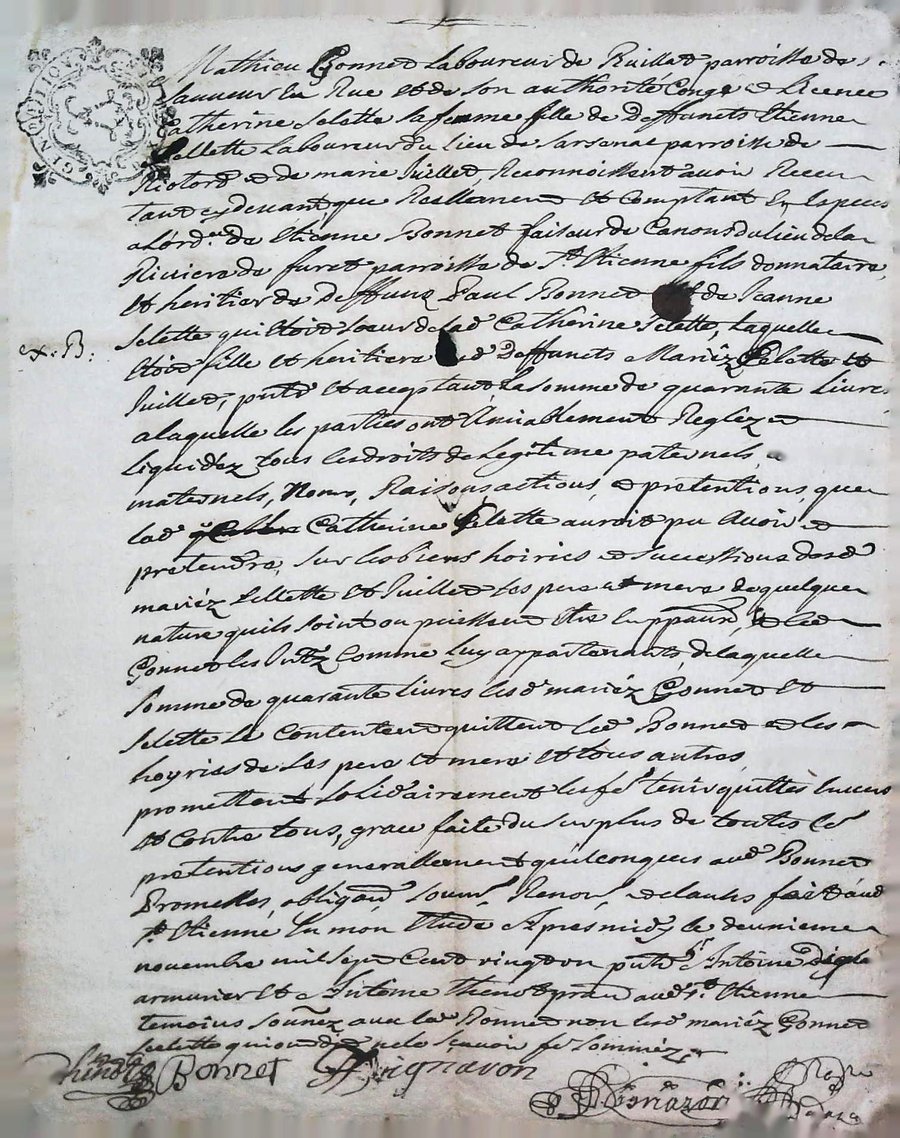 Mathieu Gonnet Laboureur de Ruillat parroisse de S.
Sauveur En Rue Et de son authorité Congé et Licence
Catherine Selette sa femme fille de deffunets Etienne
Sellette Laboureur du Lieu de Larsenat parroisse de
Riotord et de marie Juillet, Reconnoissent avoir Receu
tant cydevant que Reellement Et Comptant En Especes
a L'ord.re de Etienne Bonnet faiseur de Canons du lieu de la
Riviere de furet parroisse de St. Etienne fils donnataire
Et heritier de Deffunz Paul Bonnet de Jeanne
Selette qui Etoit soeur de lad. Catherine Selette, Laquelle
Etoit fille Et heritiere desd. Deffunets Mariéz Selette Et
Juillet, pnt. Et acceptant La somme de quarante Livres
a laquelle les parties ont Amiablement Regléz et
Liquidéz tous les droits de Legitime paternels, et
maternels, Noms, Raisons, actions, et pretentions, que
lad. Catherine Selette auroit pu Avoir et
pretendre, sur les biens hoiries et successions desd.
mariéz Sellette Et Juillet ses pere et mere de quelque
nature quils soint ou puissent Etre led.
Bonnet les Comme luy appartenants, de laquelle
somme de quarante Livres lesd. mariéz Gonnet Et
Selette Se Contentent quittent led. Bonnet et les
hoyries de ses pere Et mere Et tous autres
promettent solidairement les fe. tenir quittes Envers
Et Contre tous, grace faite du surplus de toutes les
pretentions generallement quelconques aud. Bonnet
Promesses, obligaõn, soum., Renon., et clauses fait aud.
St. Etienne En mon Etude Apres midy le deuxieme
novembre mil sept Cent vingt un pnts. Sr. Antoine
armurier Et Antoine Thenot aud. St. Etienne
temoins Sousnez avec led. Bonnet non lesd. mariéz Gonnet
Selette qui ont dit ne le Sçavoir
ex. B.
Bonnet